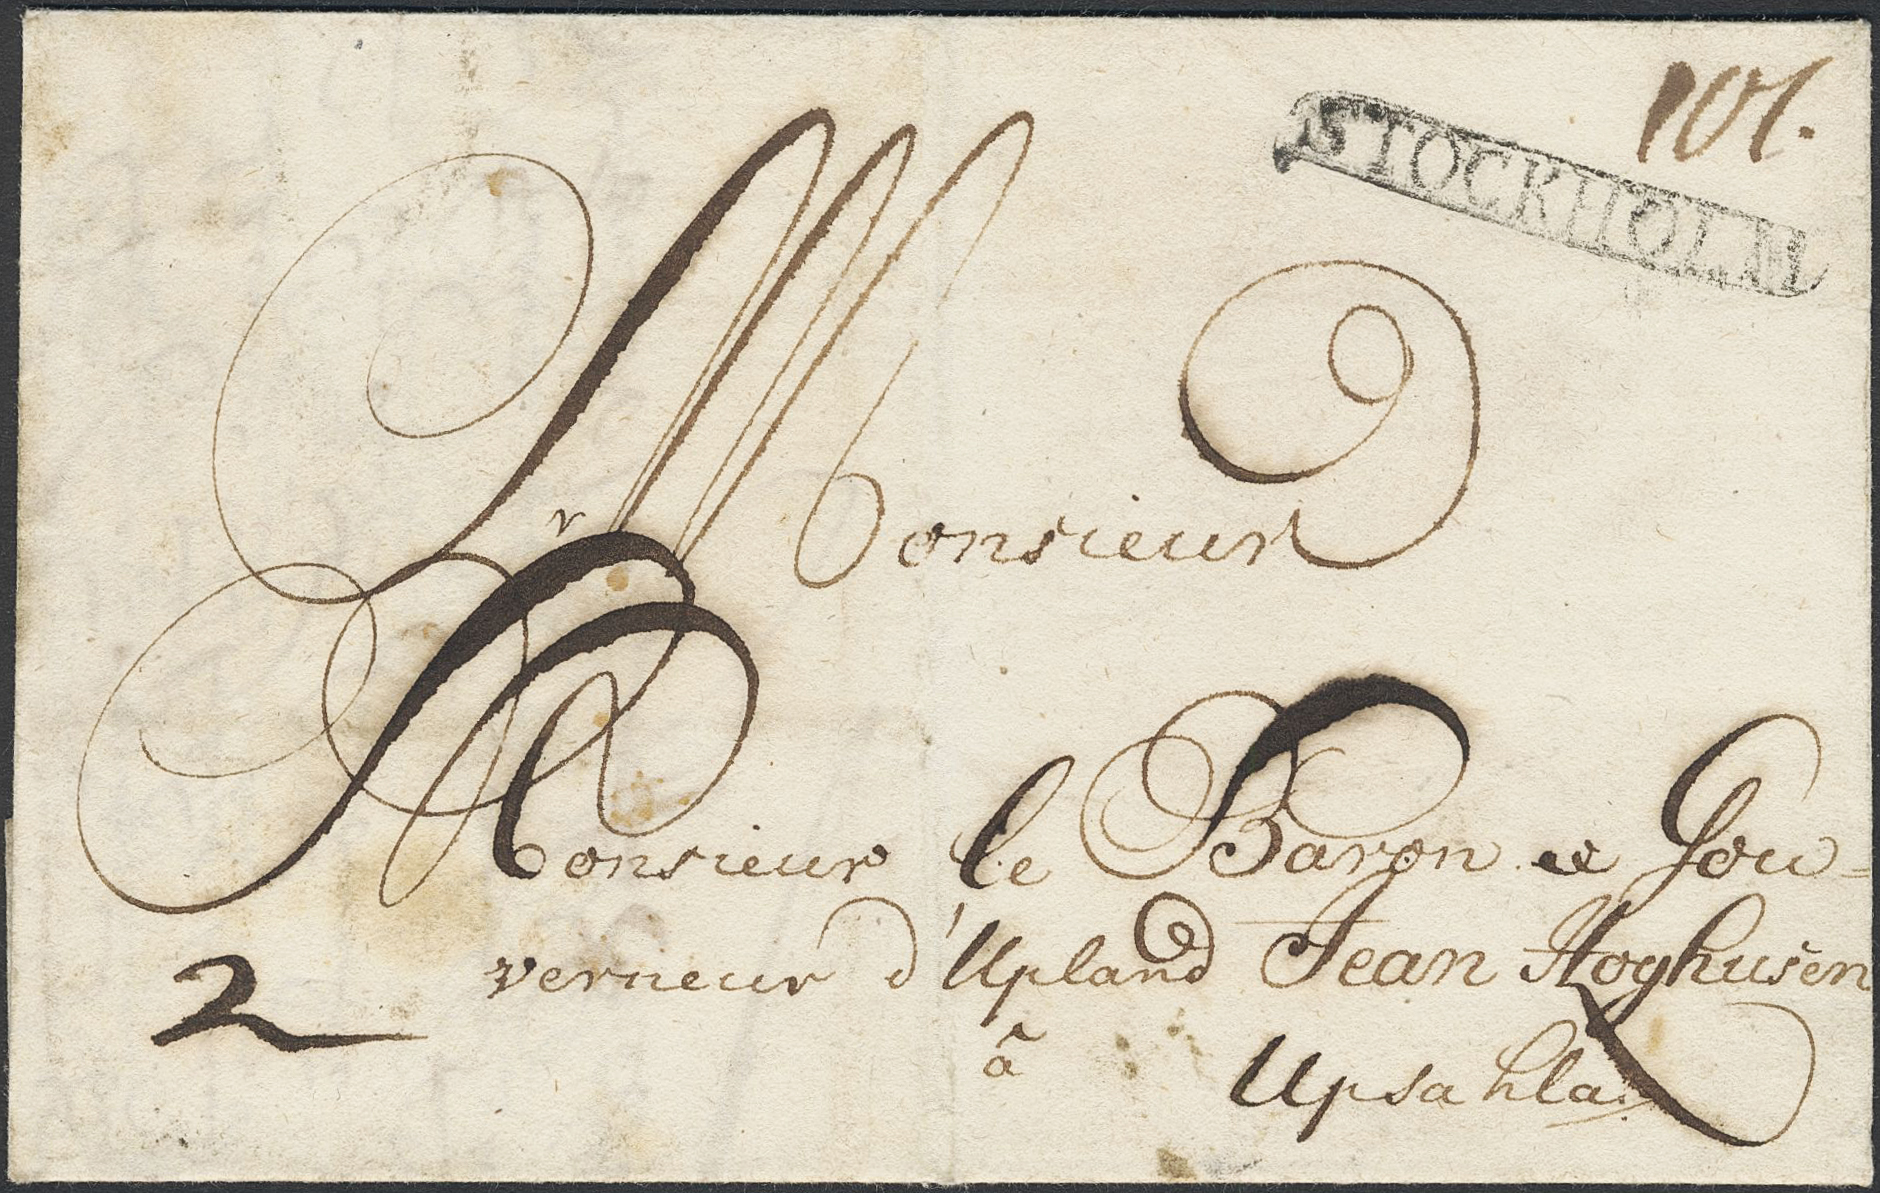 101.
STOCKHOLM
Monsieur
Monsieur le Baron et Gou-
verneur d'Upland Jean Hoghusen
2
à Upsahla.